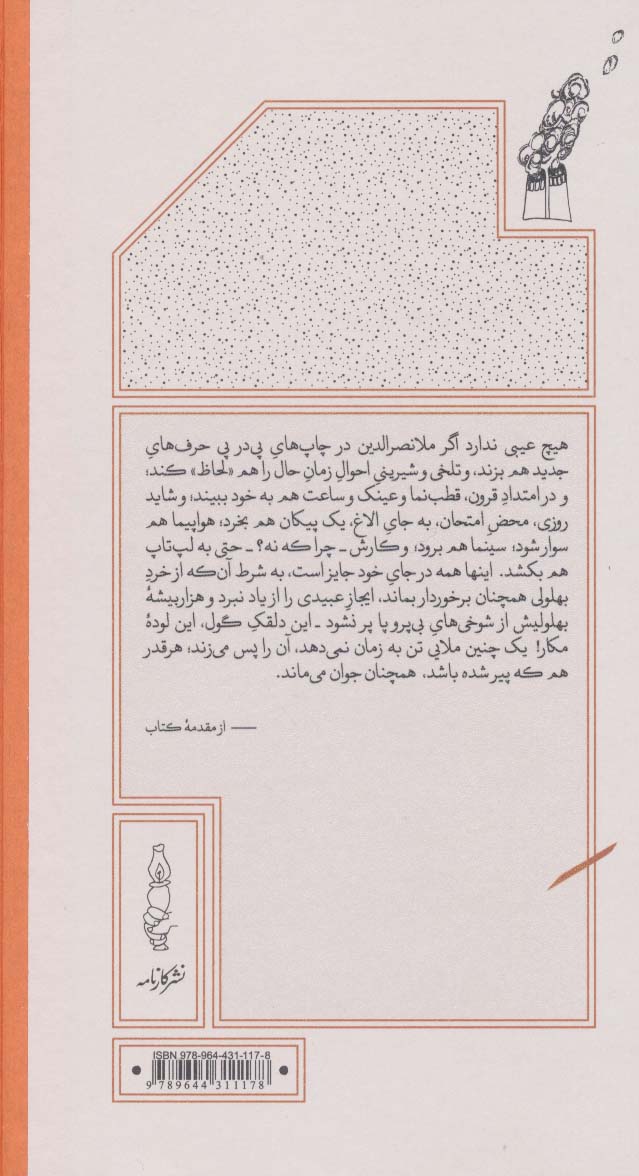 هیچ عیبی ندارد اگر ملانصرالدین در چاپ‌هایِ پی‌در پی حرف‌هایِ
جدید هم بزند، و تلخی و شیرینیِ احوالِ زمانِ حال را هم «لحاظ» کند؛
و در امتدادِ قرون، قطب‌نما و عینک و ساعت هم به خود ببیند؛ و شاید
روزی، محضِ امتحان، به جایِ الاغ، یک پیکان هم بخرد؛ هواپیما هم
سوار شود؛ سینما هم برود؛ و کارش ـ چرا که نه؟ ـ حتی به لپ‌تاپ
هم بکشد. اینها همه در جایِ خود جایز است، به شرط آن‌که از خردِ
بهلولی همچنان برخوردار بماند، ایجازِ عبیدی را از یاد نبرد و هزاربیشهٔ
بهلولیش از شوخی‌هایِ بی‌پرو پا پر نشود ـ این دلقکِ گول، این لودهٔ
مکار! یک چنین ملایی تن به زمان نمی‌دهد، آن را پس می‌زند؛ هرقدر
هم که پیر شده باشد، همچنان جوان می‌ماند.
— از مقدمهٔ کتاب
نشر کارنامه
ISBN 978-964-431-117-8
9 789644 311178